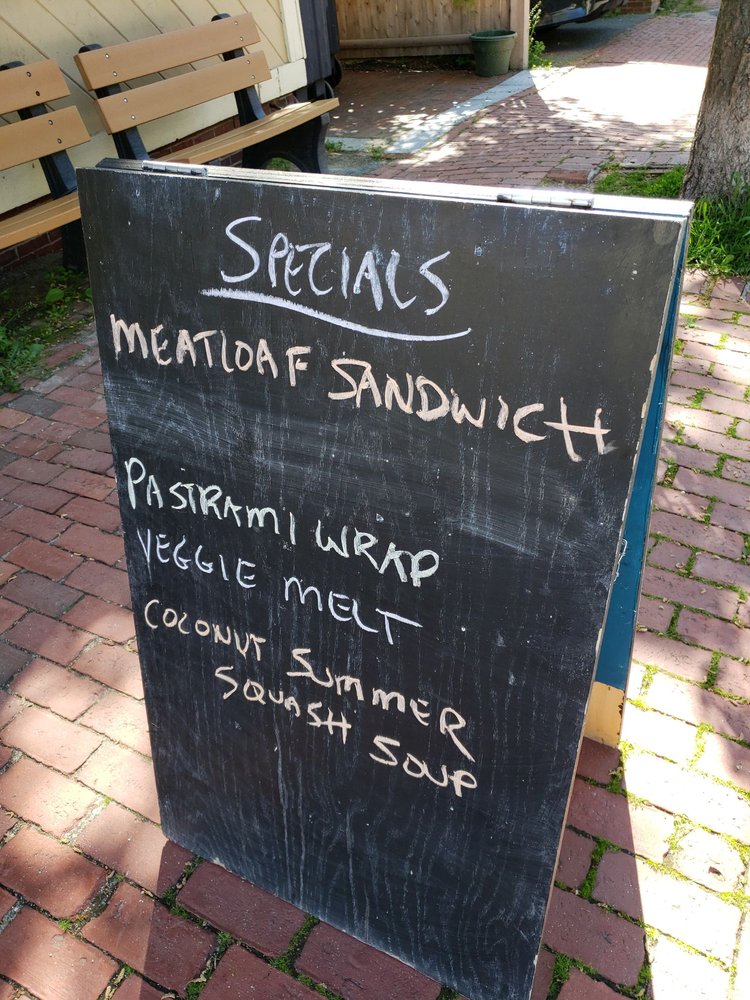 SPECIALS
MEATLOAF SANDWICH
PASTRAMI WRAP
VEGGIE MELT
COCONUT SUMMER
SQUASH SOUP